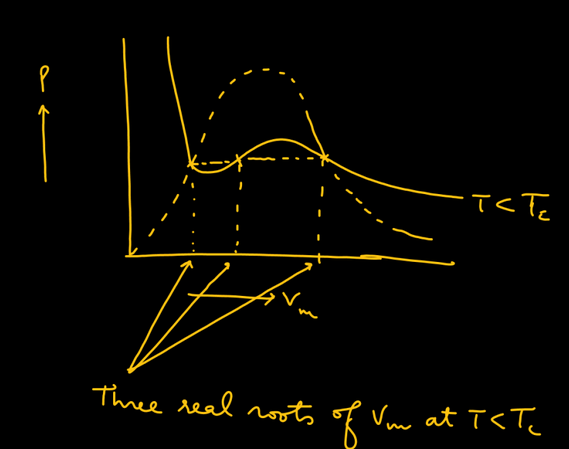 P
T < Tc
Vm
Three real roots of Vm at T < Tc